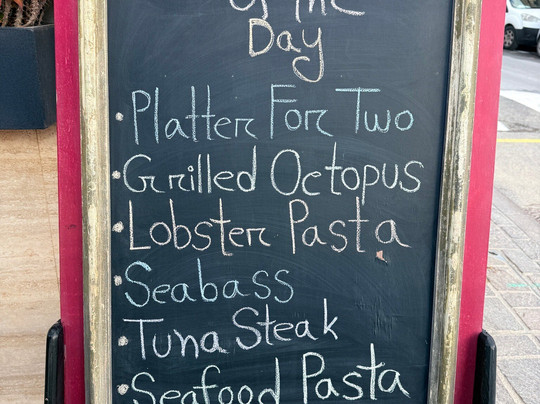 Of The
Day
Platter For Two
Grilled Octopus
Lobster Pasta
Seabass
Tuna Steak
Seafood Pasta